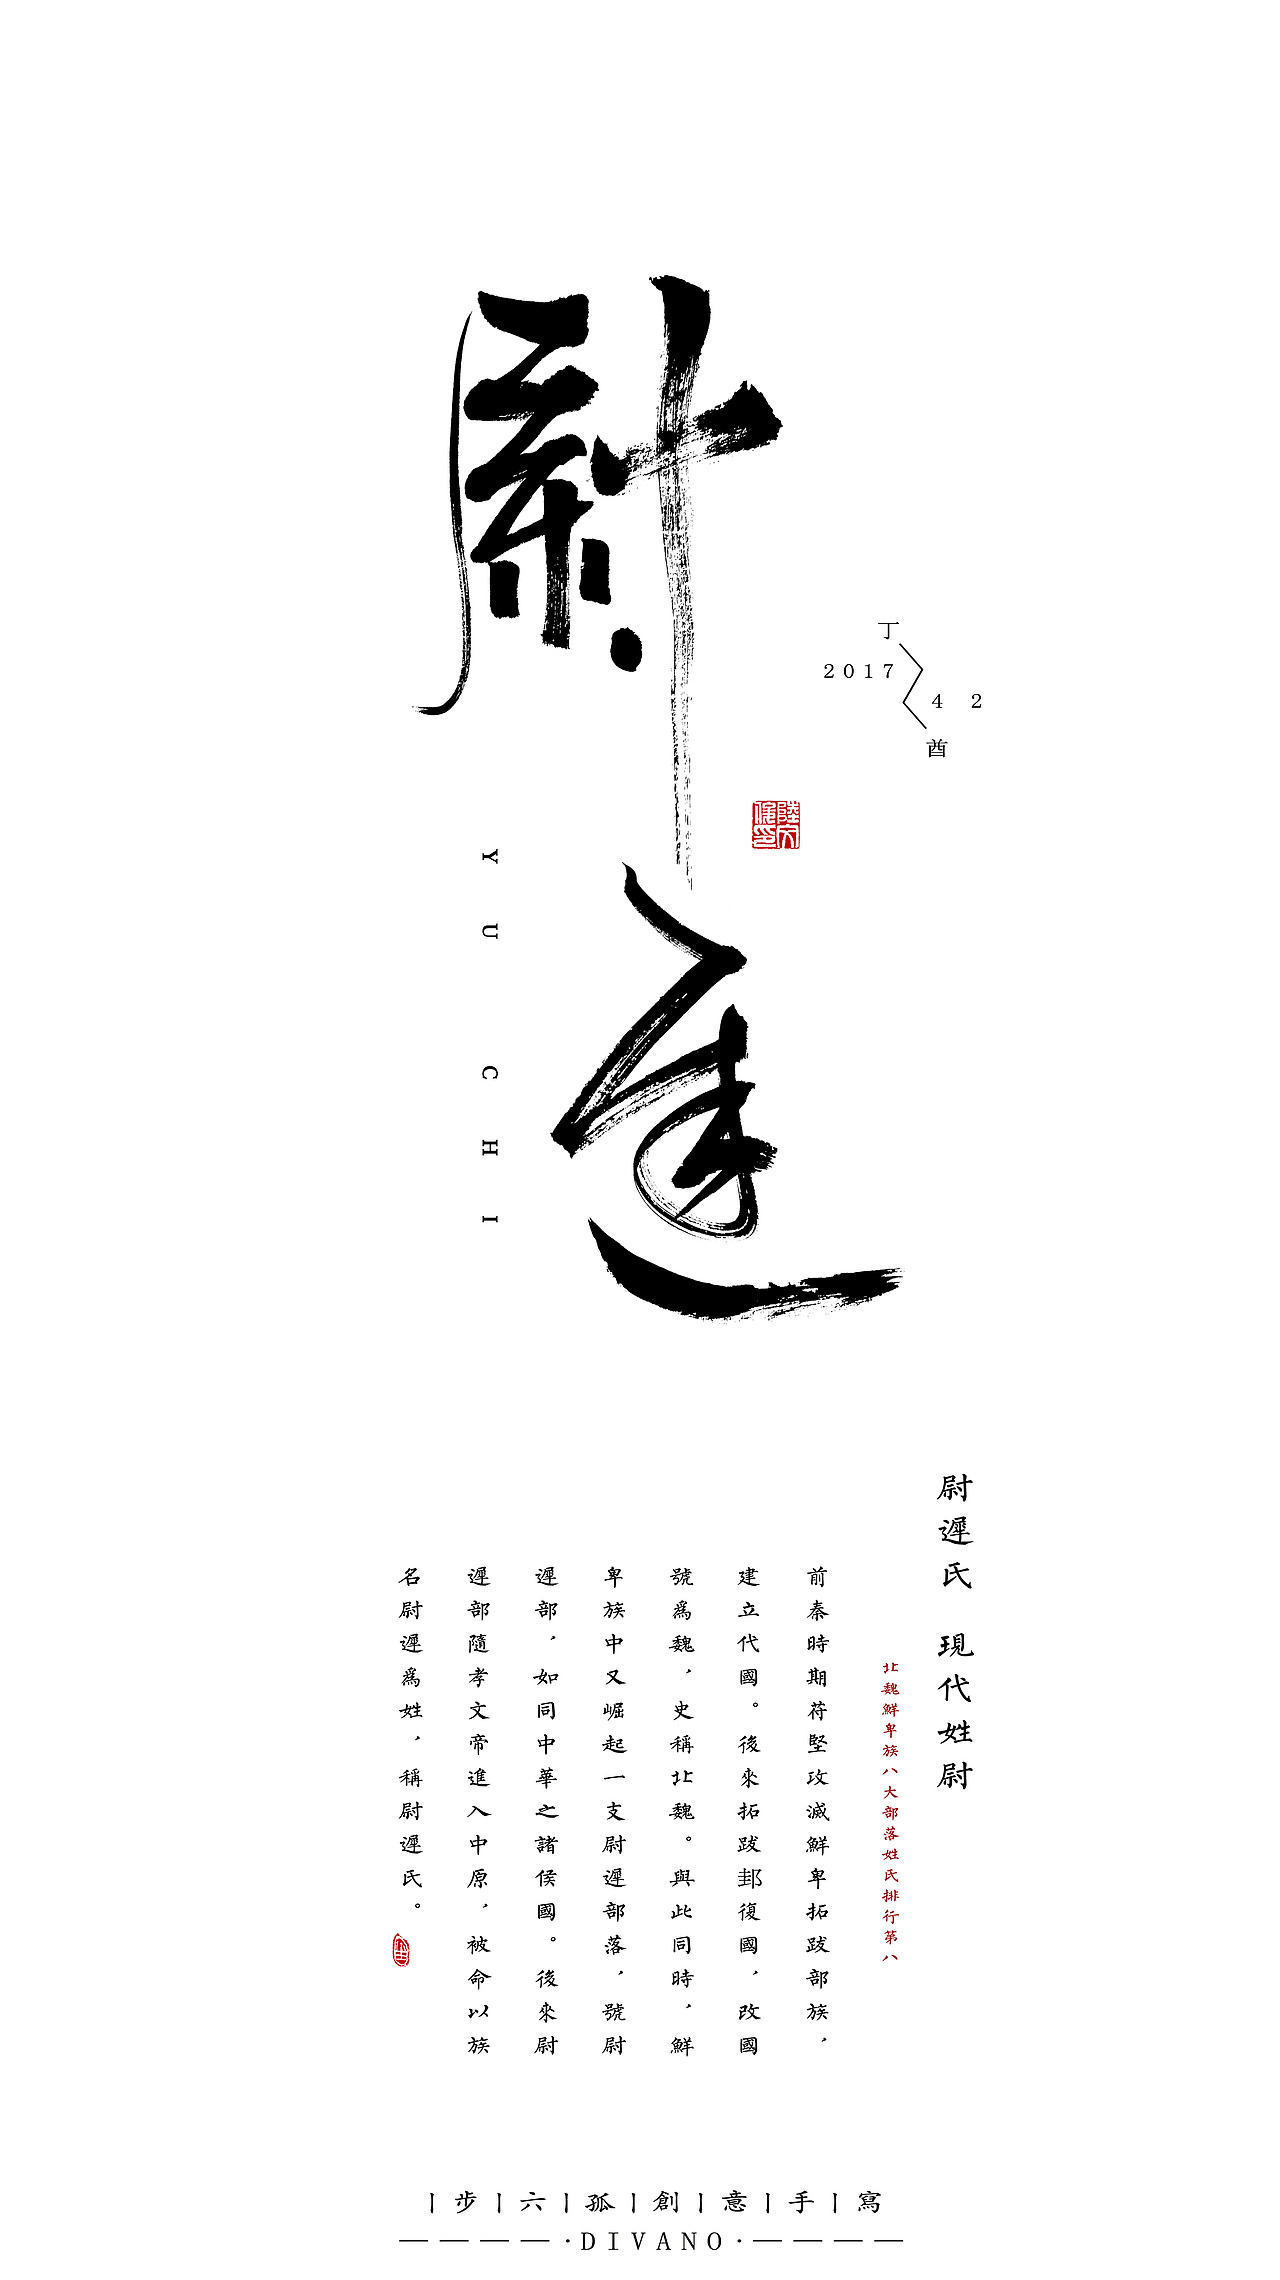 尉遲
丁
2017
4 2
酉
YU CHI
尉遲氏 現代姓尉
北魏鮮卑族八大部落姓氏排行第八
前秦時期苻堅攻滅鮮卑拓跋部族，
建立代國。後來拓跋邽復國，改國
號爲魏，史稱北魏。與此同時，鮮
卑族中又崛起一支尉遲部落，號尉
遲部，如同中華之諸侯國。後來尉
遲部隨孝文帝進入中原，被命以族
名尉遲爲姓，稱尉遲氏。
|步|六|孤|創|意|手|寫
————·DIVANO·————